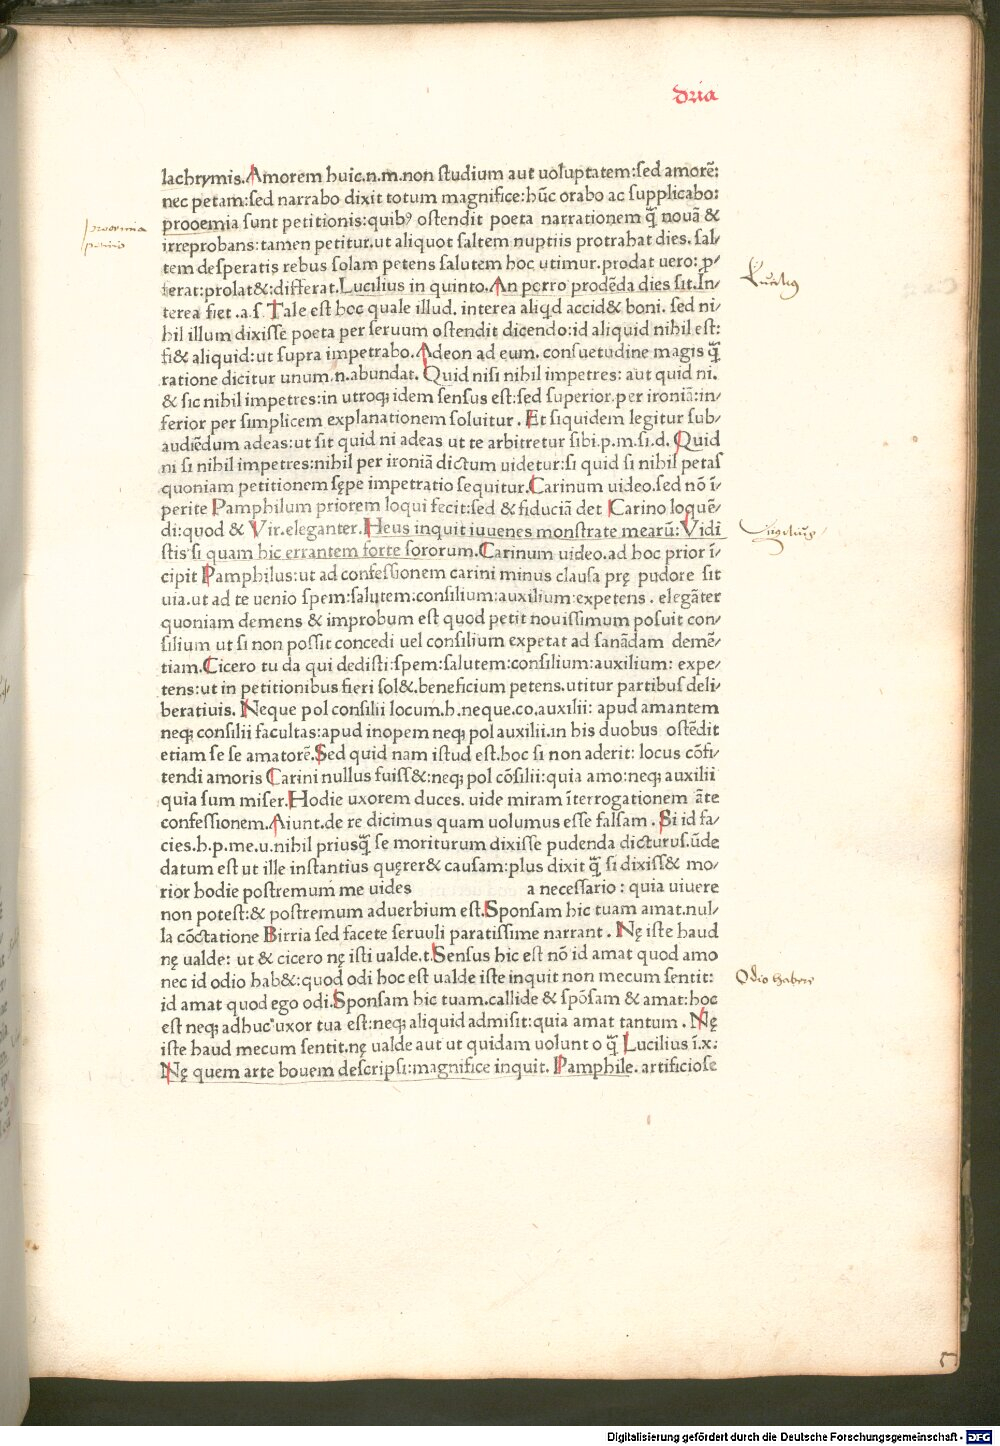 dria
lachrymis. Amorem huic.n.m.non studium aut uoluptatem:sed amorē:
nec petam:sed narrabo dixit totum magnifice:hūc orabo ac supplicabo:
prooemia sunt petitionis:quibꝰ ostendit poeta narrationem q̄ nouā &
irreprobans:tamen petitur.ut aliquot saltem nuptiis protrahat dies. sal/
tem desperatis rebus solam petens salutem hoc utimur.prodat uero: ꝓ/
ferat:prolat&:differat. Lucilius in quinto. An porro prodēda dies sit. In/
terea fiet .a.s. Tale est hoc quale illud. interea aliqd accid& boni. sed ni/
hil illum dixisse poeta per seruum ostendit dicendo:id aliquid nihil est:
fi& aliquid:ut supra impetrabo. Adeon ad eum. consuetudine magis q̄
ratione dicitur unum.n.abundat. Quid nisi nihil impetres: aut quid ni.
& sic nihil impetres:in utroq; idem sensus est:sed superior.per ironiā:in/
ferior per simplicem explanationem soluitur . Et siquidem legitur sub/
audiēdum adeas:ut sit quid ni adeas ut te arbitretur sibi.p.m.si.d. Quid
ni si nihil impetres:nihil per ironiā dictum uidetur:si quid si nihil petas
quoniam petitionem sępe impetratio sequitur. Carinum uideo.sed nō ī/
perite Pamphilum priorem loqui fecit:sed & fiduciā det Carino loquē/
di:quod & Vir.eleganter. Heus inquit iuuenes monstrate mearū: Vidi
stis si quam hic errantem forte sororum. Carinum uideo.ad hoc prior ī/
cipit Pamphilus:ut ad confessionem carini minus clausa prę pudore sit
uia.ut ad te uenio spem:salutem:consilium:auxilium:expetens . elegāter
quoniam demens & improbum est quod petit nouissimum posuit con/
silium ut si non possit concedi uel consilium expetat ad sanādam demē/
tiam. Cicero tu da qui dedisti:spem:salutem:consilium:auxilium: expe/
tens:ut in petitionibus fieri sol&.beneficium petens.utitur partibus deli/
beratiuis. Neque pol consilii locum.h.neque.co.auxilii: apud amantem
neq; consilii facultas:apud inopem neq; pol auxilii.in his duobus ostēdit
etiam se se amatorē. Sed quid nam istud est.hoc si non aderit: locus cōfi/
tendi amoris Carini nullus fuiss&:neq; pol cōsilii:quia amo:neq; auxilii
quia sum miser. Hodie uxorem duces. uide miram īterrogationem āte
confessionem. Aiunt.de re dicimus quam uolumus esse falsam . Si id fa/
cies.h.p.me.u.nihil priusq̄ se moriturum dixisse pudenda dicturus.ūde
datum est ut ille instantius quęrer& causam:plus dixit q̄ si dixiss& mo/
rior hodie postremum me uides a necessario : quia uiuere
non potest:& postremum aduerbium est. Sponsam hic tuam amat.nul/
la cōctatione Birria sed facete seruuli paratissime narrant . Nę iste haud
nę ualde: ut & cicero nę isti ualde.t. Sensus hic est nō id amat quod amo
nec id odio hab&:quod odi hoc est ualde iste inquit non mecum sentit:
id amat quod ego odi. Sponsam hic tuam.callide & spōsam & amat:hoc
est neq; adhuc uxor tua est:neq; aliquid admisit:quia amat tantum . Nę
iste haud mecum sentit.nę ualde aut ut quidam uolunt o q̄ Lucilius ī.x:
Nę quem arte bouem descripsi:magnifice inquit. Pamphile. artificiose
Odio habere
Digitalisierung gefördert durch die Deutsche Forschungsgemeinschaft - DFG